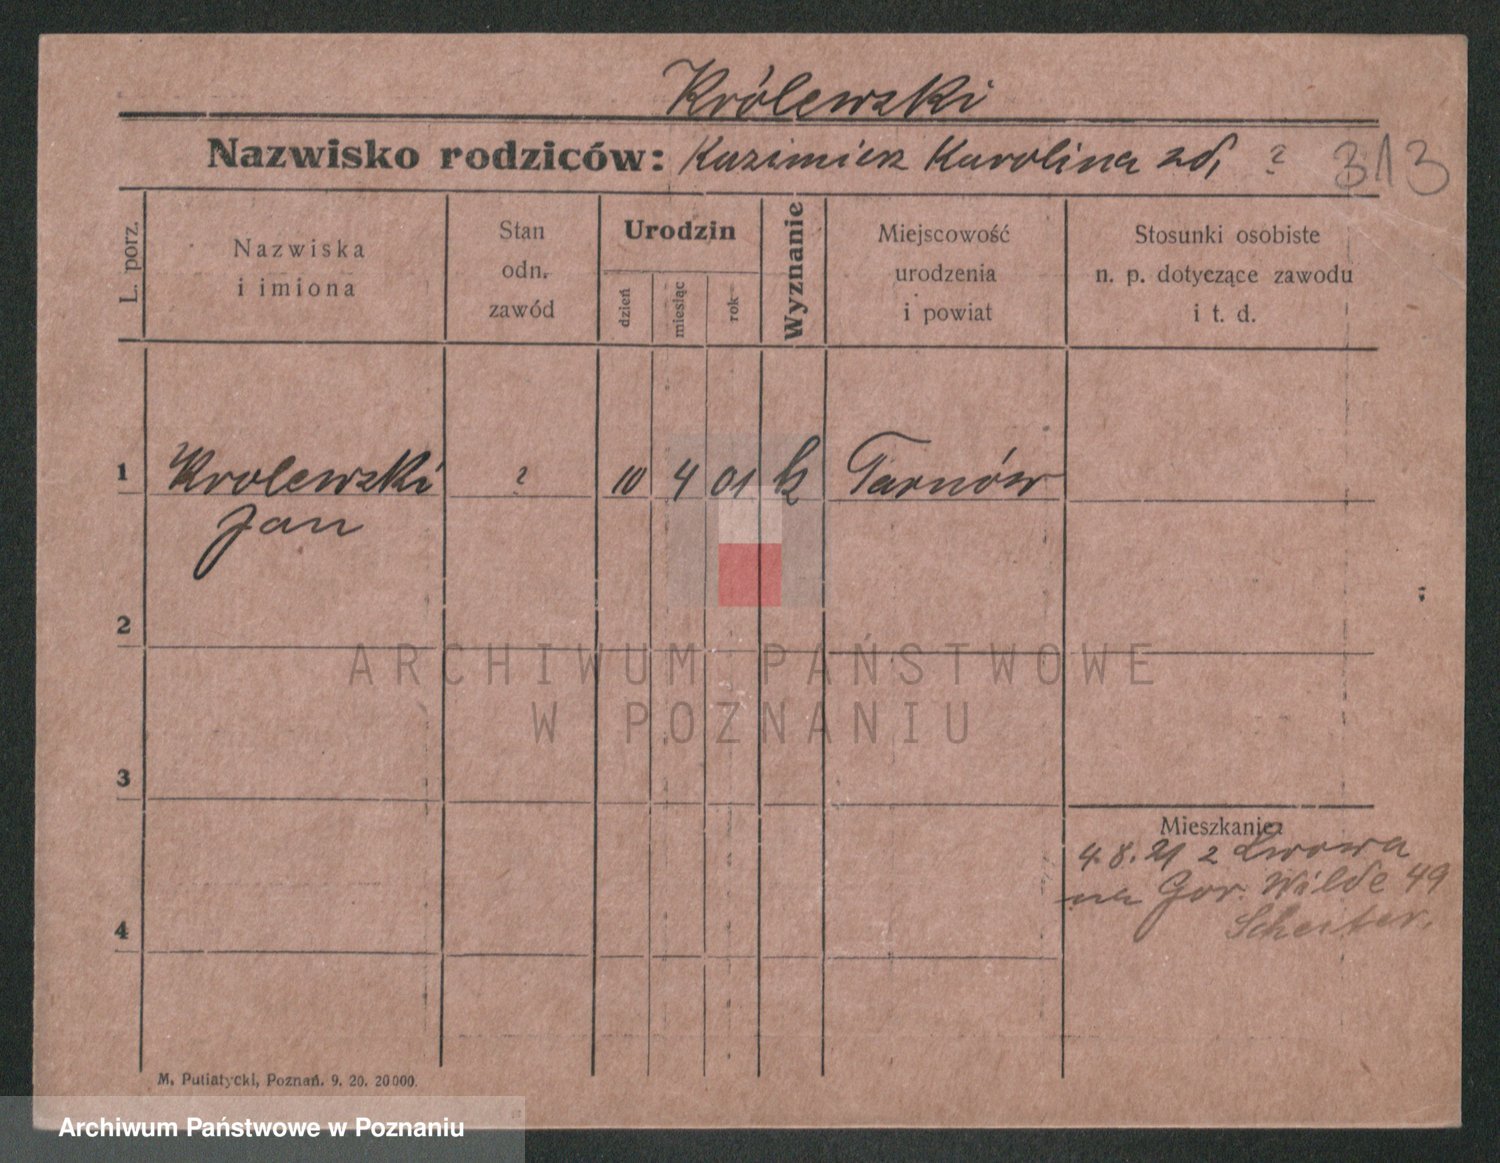 Królewski
Nazwisko rodziców: Kazimierz Karolina zd, ?
313
L. porz.
Nazwiska
i imiona
Stan
odn.
zawód
Urodzin
dzień
miesiąc
rok
Wyznanie
Miejscowość
urodzenia
i powiat
Stosunki osobiste
n. p. dotyczące zawodu
i t. d.
1 Krolewski ? 10 4 01 k Tarnów
Jan
2
ARCHIWUM PAŃSTWOWE
W POZNANIU
3
Mieszkanie:
4. 8. 21 z Lwowa
na Gor. Wilde 49
4
M. Putiatycki, Poznań. 9. 20. 20000.
Archiwum Państwowe w Poznaniu